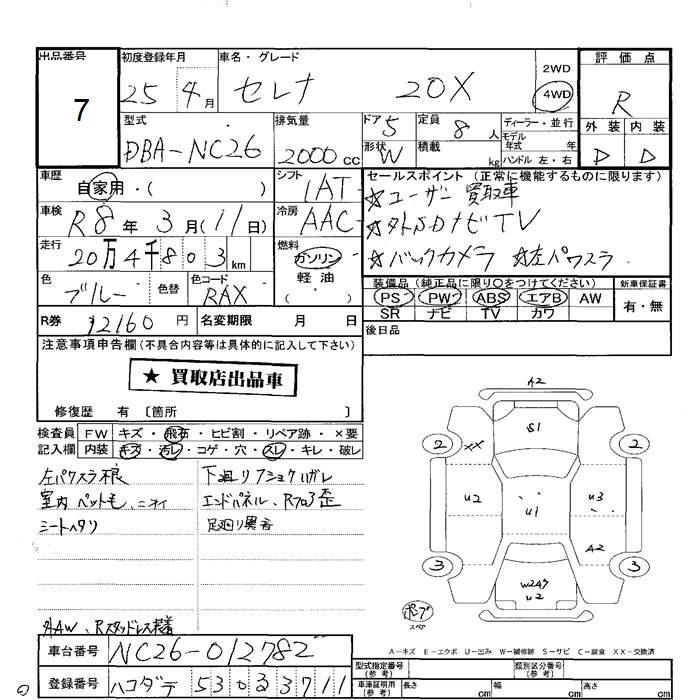 出品番号 7
初度登録年月 25 4月
車名・グレード セレナ 20X
2WD
4WD
評価点 R
外装 内装
D D
型式 DBA-NC26
排気量 2000cc
ドア 5
形状 W
定員 8人
積載 kg
ディーラー・並行
モデル年式 年
ハンドル 左・右
車歴 自家用・( )
シフト IAT
車検 R8年3月(11日)
冷房 AAC
走行 20万4千803km
燃料 ガソリン
軽油
・( )
色 ブルー 色替
色コード RAX
R券 12160円
名変期限 月 日
セールスポイント (正常に機能するものに限ります)
☆ユーザー買取車
☆外SDナビTV
☆バックカメラ ☆左パワスラ
装備品 (純正品に限り○をつけてください)
PS PW ABS エアB AW
SR ナビ TV カワ
新車保証書
有・無
後日品
注意事項申告欄(不具合内容等は具体的に記入して下さい)
★ 買取店出品車
修復歴 有 〔箇所 〕
検査員 FW キズ・飛石・ヒビ割・リペア跡・×要
記入欄 内装 キズ・汚レ・コゲ・穴・スレ・キレ・破レ
左パワスラ不良
室内ペット毛、ニオイ
シートヘタリ
下廻リ ハガレ
エンドパネル、Rフロア歪
足廻り異音
外AW、Rスタッドレス装着
A2
S1
2 XX 2
U2 U1 U3
A2
3 3
W2 U2
スペア
A-キズ E-エクボ U-凹み W-補修跡 S-サビ C-腐食 XX-交換済
車台番号 NC26-012782
登録番号 ハコダテ 530 3711
型式指定番号(参考)
類別区分番号(参考)
車体証明用(参考) 長さ cm 幅 cm 高さ cm